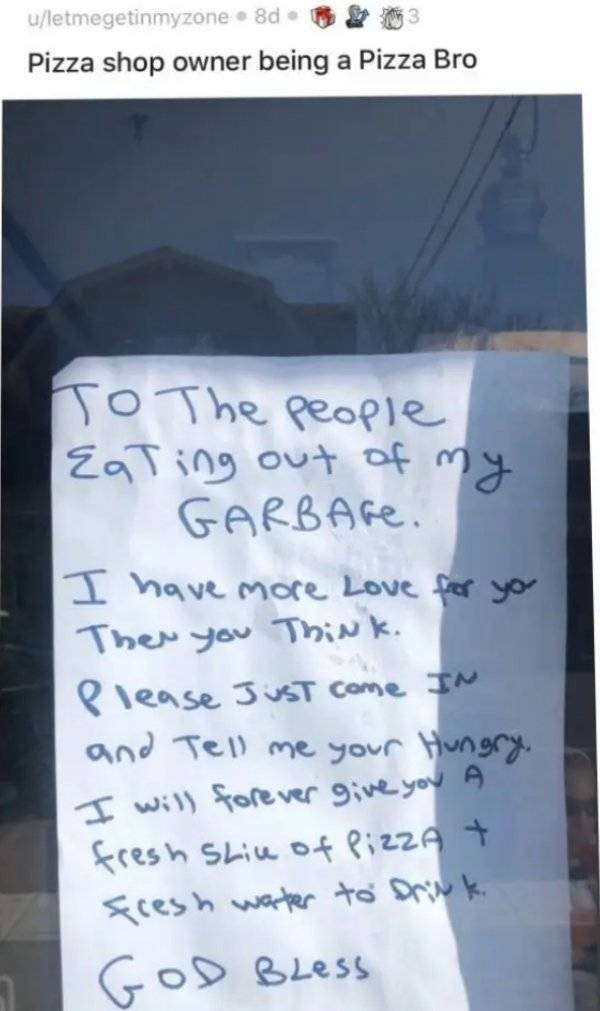 u/letmegetinmyzone • 8d • 3
Pizza shop owner being a Pizza Bro
TO The people
EaTing out of my
GARBAGe.
I have more Love for you
Then you ThiNk.
Please JUST come IN
and Tell me your Hungry.
I will forever give you A
fresh SLice of PizzA +
fresh water to DriNk.
GOD BLess